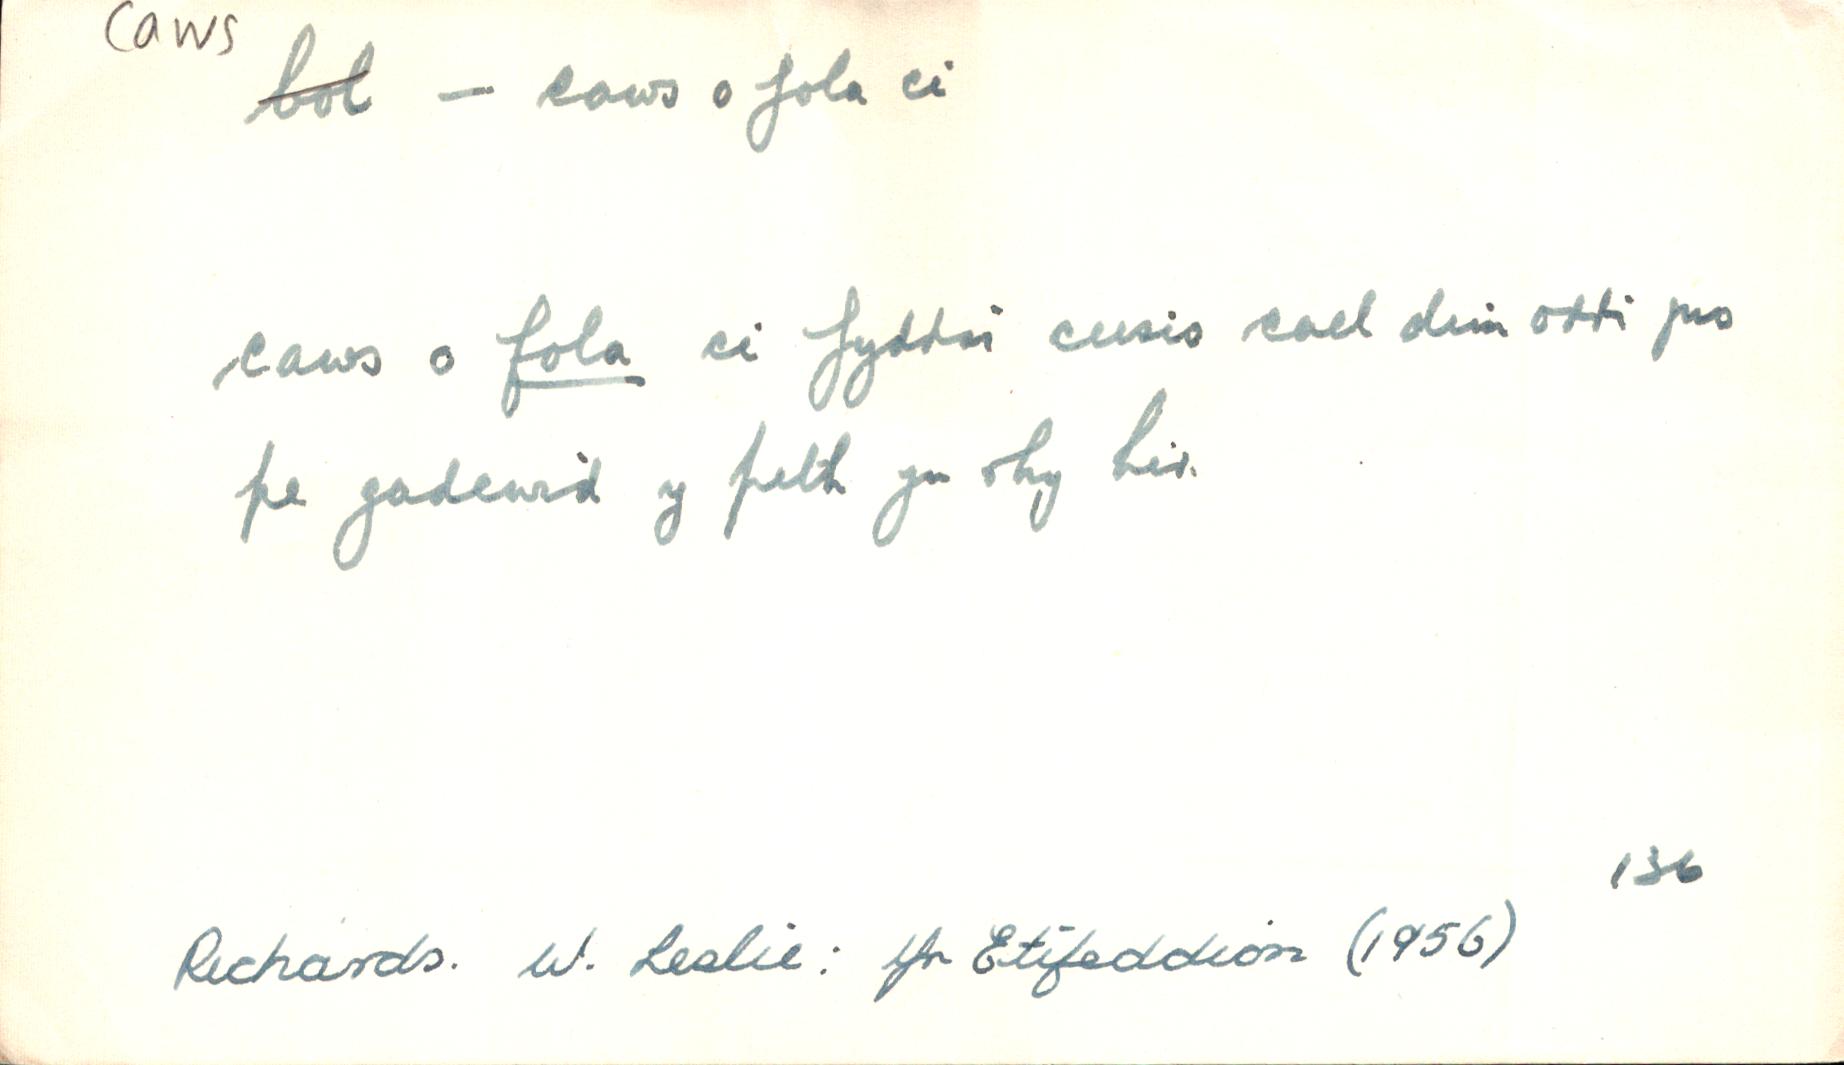 caws
bol — caws o fola ci
caws o fola ci fyddai ceisio cael dim oddi
pe gadewid y peth yn rhy hir.
136
Richards. W. Leslie: Yr Etifeddion (1956)